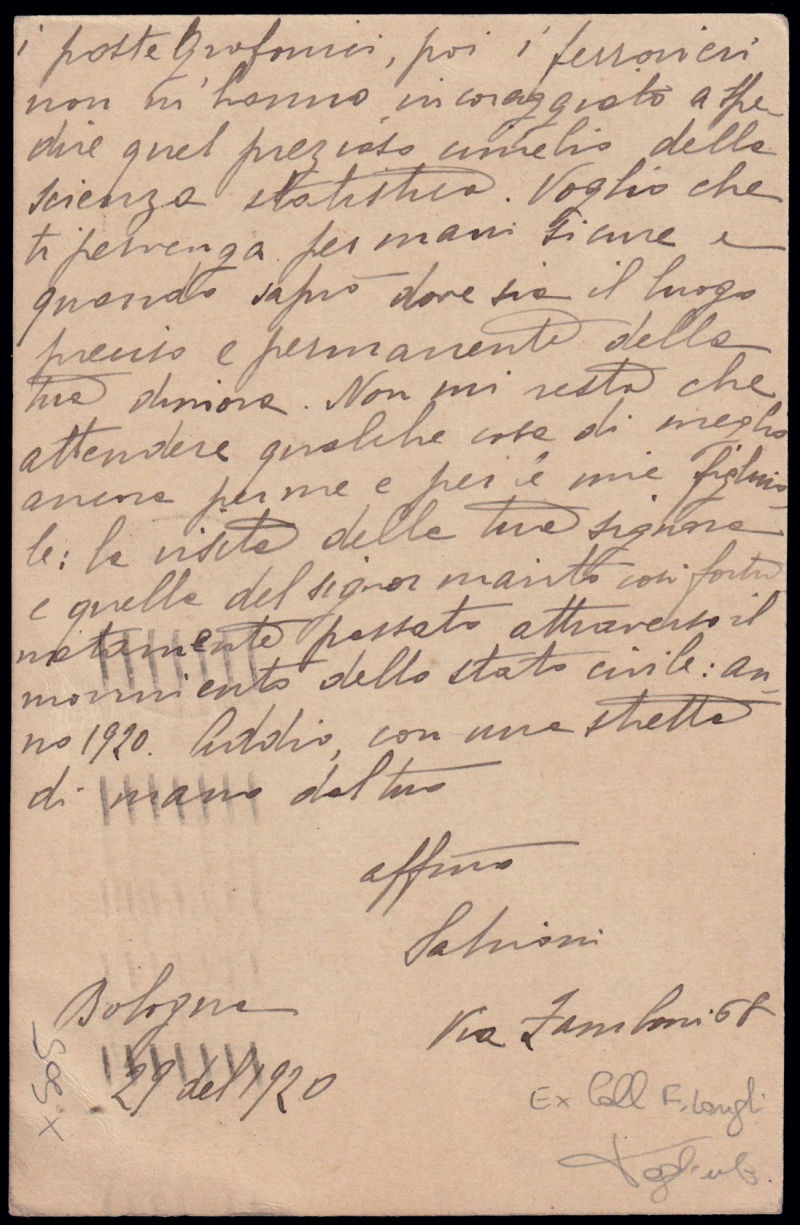 i postegrafonici, poi i ferrovieri
non m'hanno incoraggiato a spe-
dire quel prezioso cimelio della
scienza statistica. Voglio che
ti pervenga per mani sicure e
quando saprò dove sia il luogo
preciso e permanente della
tua dimora. Non mi resta che
attendere qualche cosa di meglio
ancora per me e per le mie figliuo-
le: la visita della tua signora
e quella del signor marito così fortu
natamente passato attraverso il
movimento dello stato civile: an-
no 1920. Addio, con una stretta
di mano dal tuo
affmo
Salvioni
Bologna
Via Zamboni 68
29 del 1920
Ex Coll